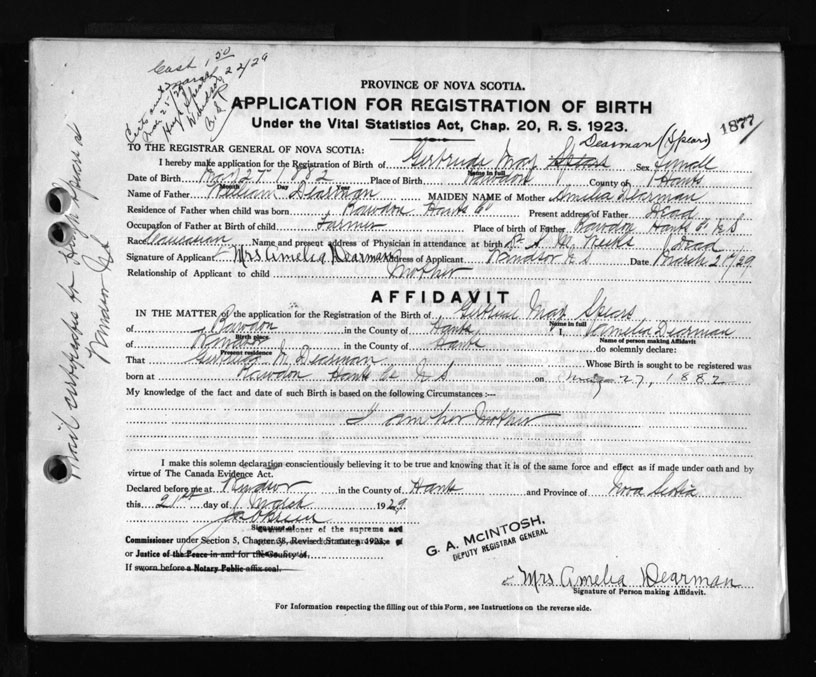 Cash 1.50
March 22/29
Windsor
PROVINCE OF NOVA SCOTIA.
APPLICATION FOR REGISTRATION OF BIRTH
Under the Vital Statistics Act, Chap. 20, R. S. 1923.
1877
Dearman (Spears)
TO THE REGISTRAR GENERAL OF NOVA SCOTIA:
I hereby make application for the Registration of Birth of Gertrude May Spears Sex Female
Name in full
Date of Birth May 27 1882 Place of Birth Rawdon County of Hants
Month Day Year
Name of Father William Dearman MAIDEN NAME of Mother Amelia Dearman
Residence of Father when child was born Rawdon Hants Co Present address of Father Dead
Occupation of Father at Birth of child Farmer Place of birth of Father Rawdon Hants Co N S
Race Name and present address of Physician in attendance at birth Dr A. Dead
Signature of Applicant Mrs Amelia Dearman Address of Applicant Windsor N S Date March 21/29
Relationship of Applicant to child Mother
AFFIDAVIT
IN THE MATTER of the application for the Registration of the Birth of Gertrude May Spears
Name in full
of Rawdon in the County of Hants I, Amelia Dearman
Birth place
Name of person making Affidavit
of Windsor in the County of Hants do solemnly declare:
Present residence
That Gertrude M. Dearman Whose Birth is sought to be registered was
born at Rawdon Hants Co N S on May 27, 1882
My knowledge of the fact and date of such Birth is based on the following Circumstances :—
I am her Mother
I make this solemn declaration conscientiously believing it to be true and knowing that it is of the same force and effect as if made under oath and by
virtue of The Canada Evidence Act.
Declared before me at Windsor in the County of Hants and Province of Nova Scotia
this 21st day of March 1929
Signature
Commissioner under Section 5, Chapter 38, Revised Statutes 1923,
or Justice of the Peace in and for the County of
If sworn before a Notary Public affix seal.
G. A. MCINTOSH,
DEPUTY REGISTRAR GENERAL
Mrs Amelia Dearman
Signature of Person making Affidavit.
For Information respecting the filling out of this Form, see Instructions on the reverse side.
Mail certificate to Hugh Spears at
Windsor NS